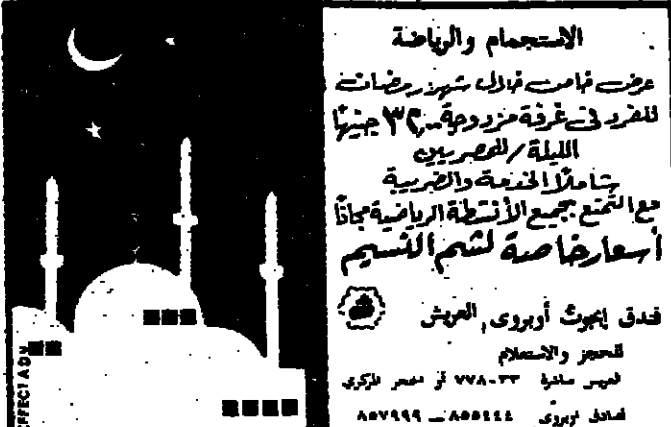 الاستجمام والرياضة
عرض خاص خلال شهر رمضان
للفرد فى غرفة مزدوجة .. ٣٢ جنيهًا
الليلة / للمصريين
شاملًا الخدمة والضريبة
مع التمتع بجميع الأنشطة الرياضية مجانًا
أسعار خاصة لشم النسيم
فندق إيجوث أوبروى, العريش
للحجز والاستعلام
العريش مباشرة ٧٧٨٠٣٣ أو الحجز المركزى
فنادق أوبروى ٨٥٥٤٤٤ - ٨٥٧٩٩٩
EFFECT ADV